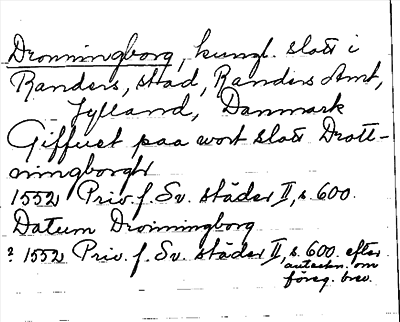 Dronningborg, kungl. slott i
Randers, stad, Randers Amt,
Jylland, Danmark
Giffuet paa wort slott Drott-
ningborgh
1552 Priv. f. Sv. städer II, s. 600.
Datum Dronningborg
? 1552 Priv. f. Sv. städer II, s. 600. efter
anteckn. om
föreg. brev.